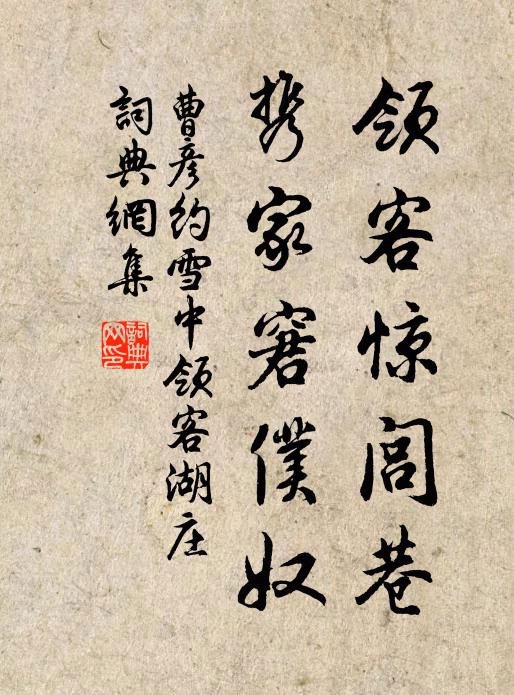 领客惊闾巷
携家窘僕奴
曹彦约雪中领客湖庄
詞典網集
詞典網印